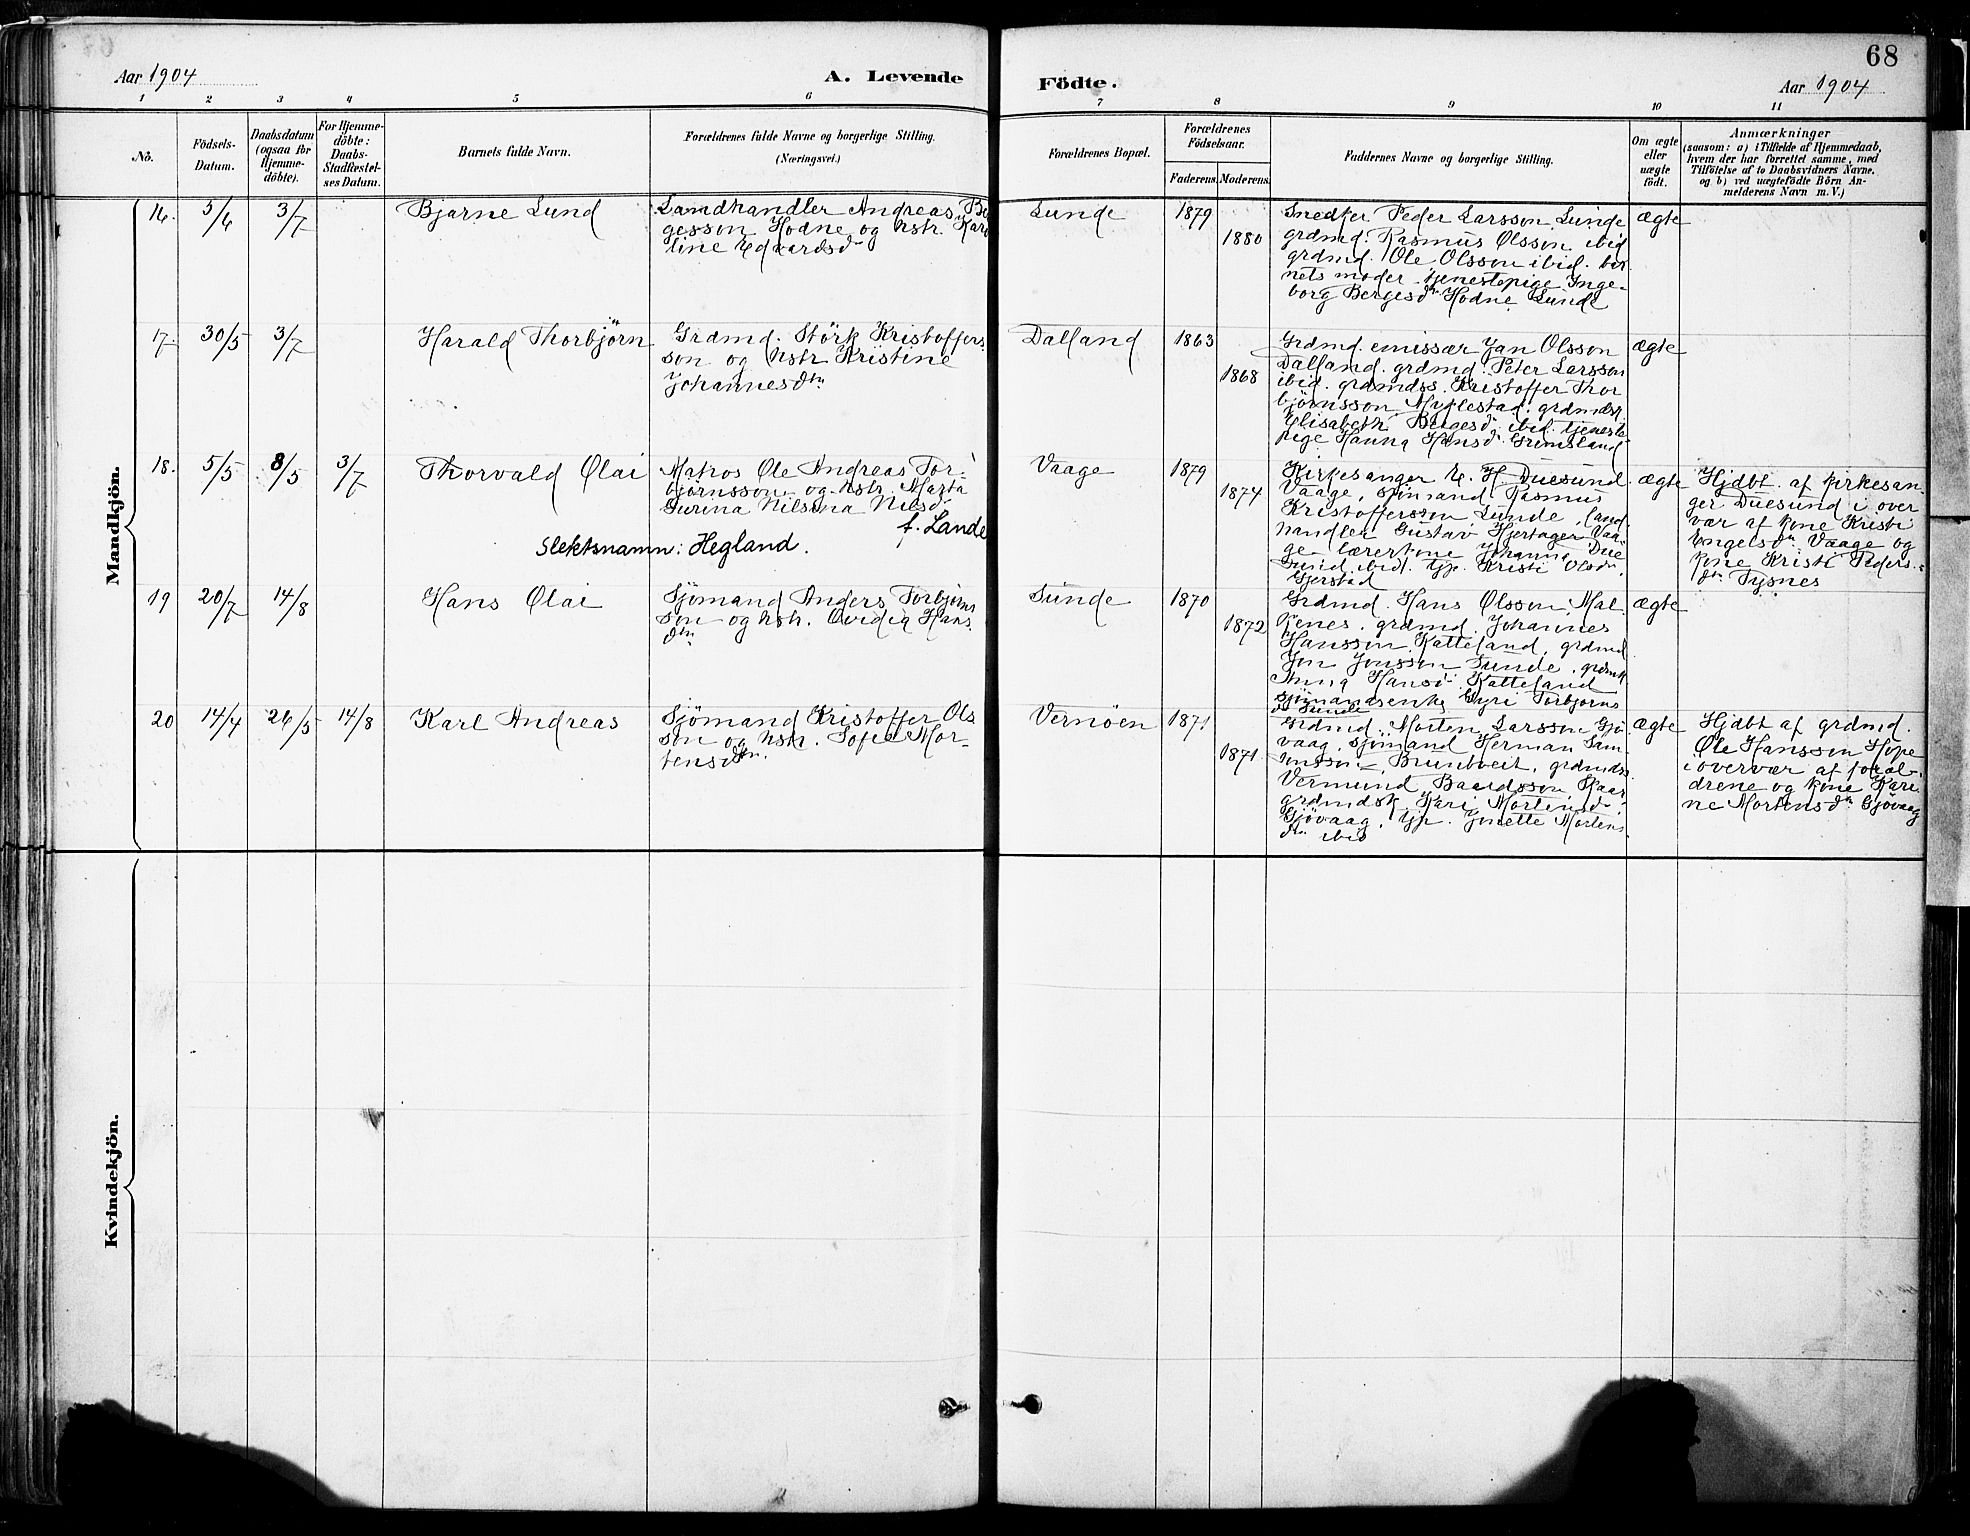 68
Aar 1904
A. Levende
Födte.
Aar 1904
1 2 3 4 5 6 7 8 9 10 11
No.
Födsels-
Datum.
Daabsdatum
(ogsaa for
Hjemme-
döbte).
For Hjemme-
döbte:
Daabs-
Stadfæstel-
ses Datum.
Barnets fulde Navn.
Forældrenes fulde Navne og borgerlige Stilling.
(Næringsvei.)
Forældrenes Bopæl.
Forældrenes
Födselsaar.
Faderens. Moderens.
Faddernes Navne og borgerlige Stilling.
Om ægte
eller
uægte
födt.
Anmærkninger
(saasom: a) i Tilfælde af Hjemmedaab,
hvem der har forrettet samme, med
Tilföielse af to Daabsvidners Navne.
og b) ved uægtefödte Börn An-
melderens Navn m. V.)
Mandkjön.
16. 5/6 3/7
Bjarne Lund
Landhandler Andreas Be
gesson Hodne og hstr. Karo
line Edvardsd
Lunde
1879
1880
Snedker Peder Larsson Lunde
grdmd. Rasmus Olsson ibid
grdmd. Ole Olsson ibid. bar
nets moder tjenestepige Inge-
borg Bergesdtr Hodne Lunde
ægte
17. 30/5 3/7
Harald Thorbjörn
Grdmd. Störk Kristoffers
son og hstr Kristine
Johannesdtr
Dalland
1863
1868
Grdmd. emissær Jan Olsson
Dalland. grdmd. Peter Larsson
ibid. grdmdss. Kristoffer Thor
björnsson Myklestad. grdmdsk.
Elisabeth Bergesd ibid. tjeneste-
pige Hanna Hansd. Grimsland
ægte
18. 5/5 8/5 3/7
Thorvald Olai
Matros Ole Andreas Tor-
björnsson og hstr. Marta
Gurina Nilsina Nilsd
f. Lande
Slektsnamn: Hegland.
Vaage
1879
1874
Kirkesanger E. H. Duesund
Vaage, sjömand Rasmus
Kristoffersson Lunde, land
handler Gustav Hjertager Vaa
ge lærerkone Johanna Due
sund ibid. tjp. Kristi Olsdtr
Gjerstad
ægte
Hjdbt. af kirkesan
ger Duesund i over
vær af kone Kristi
Engelsdtr Vaage og
kone Kristi Peders-
dtr Tysnes
19 20/7 14/8
Hans Olai
Sjömand Anders Torbjörns
son og hstr. Ovidia Hans
dtr
Sunde
1870
1872
Grdmd. Hans Olsson Mal
kenes. grdmd. Johannes
Hansson Katteland, grdmd
Jon Jonsson Sunde, grdmk
Anna Hansd Katteland
sjömandsenke Gyri Torbjörns
d Sunde
ægte
20 14/4 26/5 14/8
Karl Andreas
Sjömand Kristoffer Ols
son og hstr. Sofie Mor-
tensdtr.
Vernöen
1871
1871
Grdmd. Morten Larsson Gjö
vaag, sjömand Herman Sam-
sonsson Bruntveit, grdmdss.
Vermund Baardsson Haar
grdmdsk. Kari Mortensd
Gjövaag, tjp. Jonette Mortens
dtr ibid
ægte
Hjdbt af grdmd.
Ole Hansson Hope
i overvær af foræl-
drene og kone Kari-
ne Mortensdtr Gjövaag
Kvindekjön.